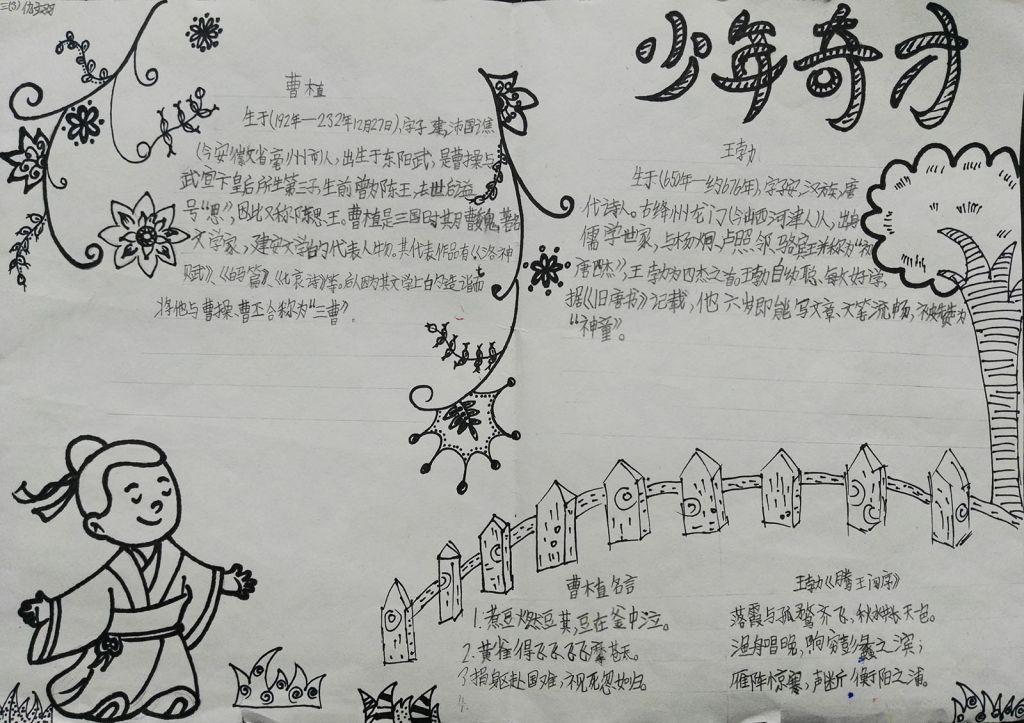 三(3)
少年奇才
曹植
生于(192年—232年12月27日),字子建,沛国谯
(今安徽省亳州市)人,出生于东阳武,是曹操与
武宣卞皇后所生第三子,生前曾为陈王,去世后谥
号“思”,因此又称陈思王。曹植是三国时期曹魏著名
文学家,建安文学的代表人物。其代表作品有《洛神
赋》、《白马篇》、《七哀诗》等。后人因其文学上的造诣而
将他与曹操、曹丕合称为“三曹”
王勃
生于(650年—约676年),字子安,汉族,唐
代诗人。古绛州龙门(今山西河津人)人,出身
儒学世家,与杨炯、卢照邻、骆宾王并称为“初
唐四杰”,王勃为四杰之首,王勃自幼聪、敏好学
据《旧唐书》记载,他六岁即能写文章、文笔流畅,被赞为
“神童”。
曹植名言
1.煮豆燃豆萁,豆在釜中泣。
2.黄雀得飞飞飞飞摩苍天。
捐躯赴国难,视死忽如归。
王勃《腾王阁序》
落霞与孤鹜齐飞,秋水长天色。
渔舟唱晚,响穷彭蠡之滨;
雁阵惊寒,声断衡阳之浦。